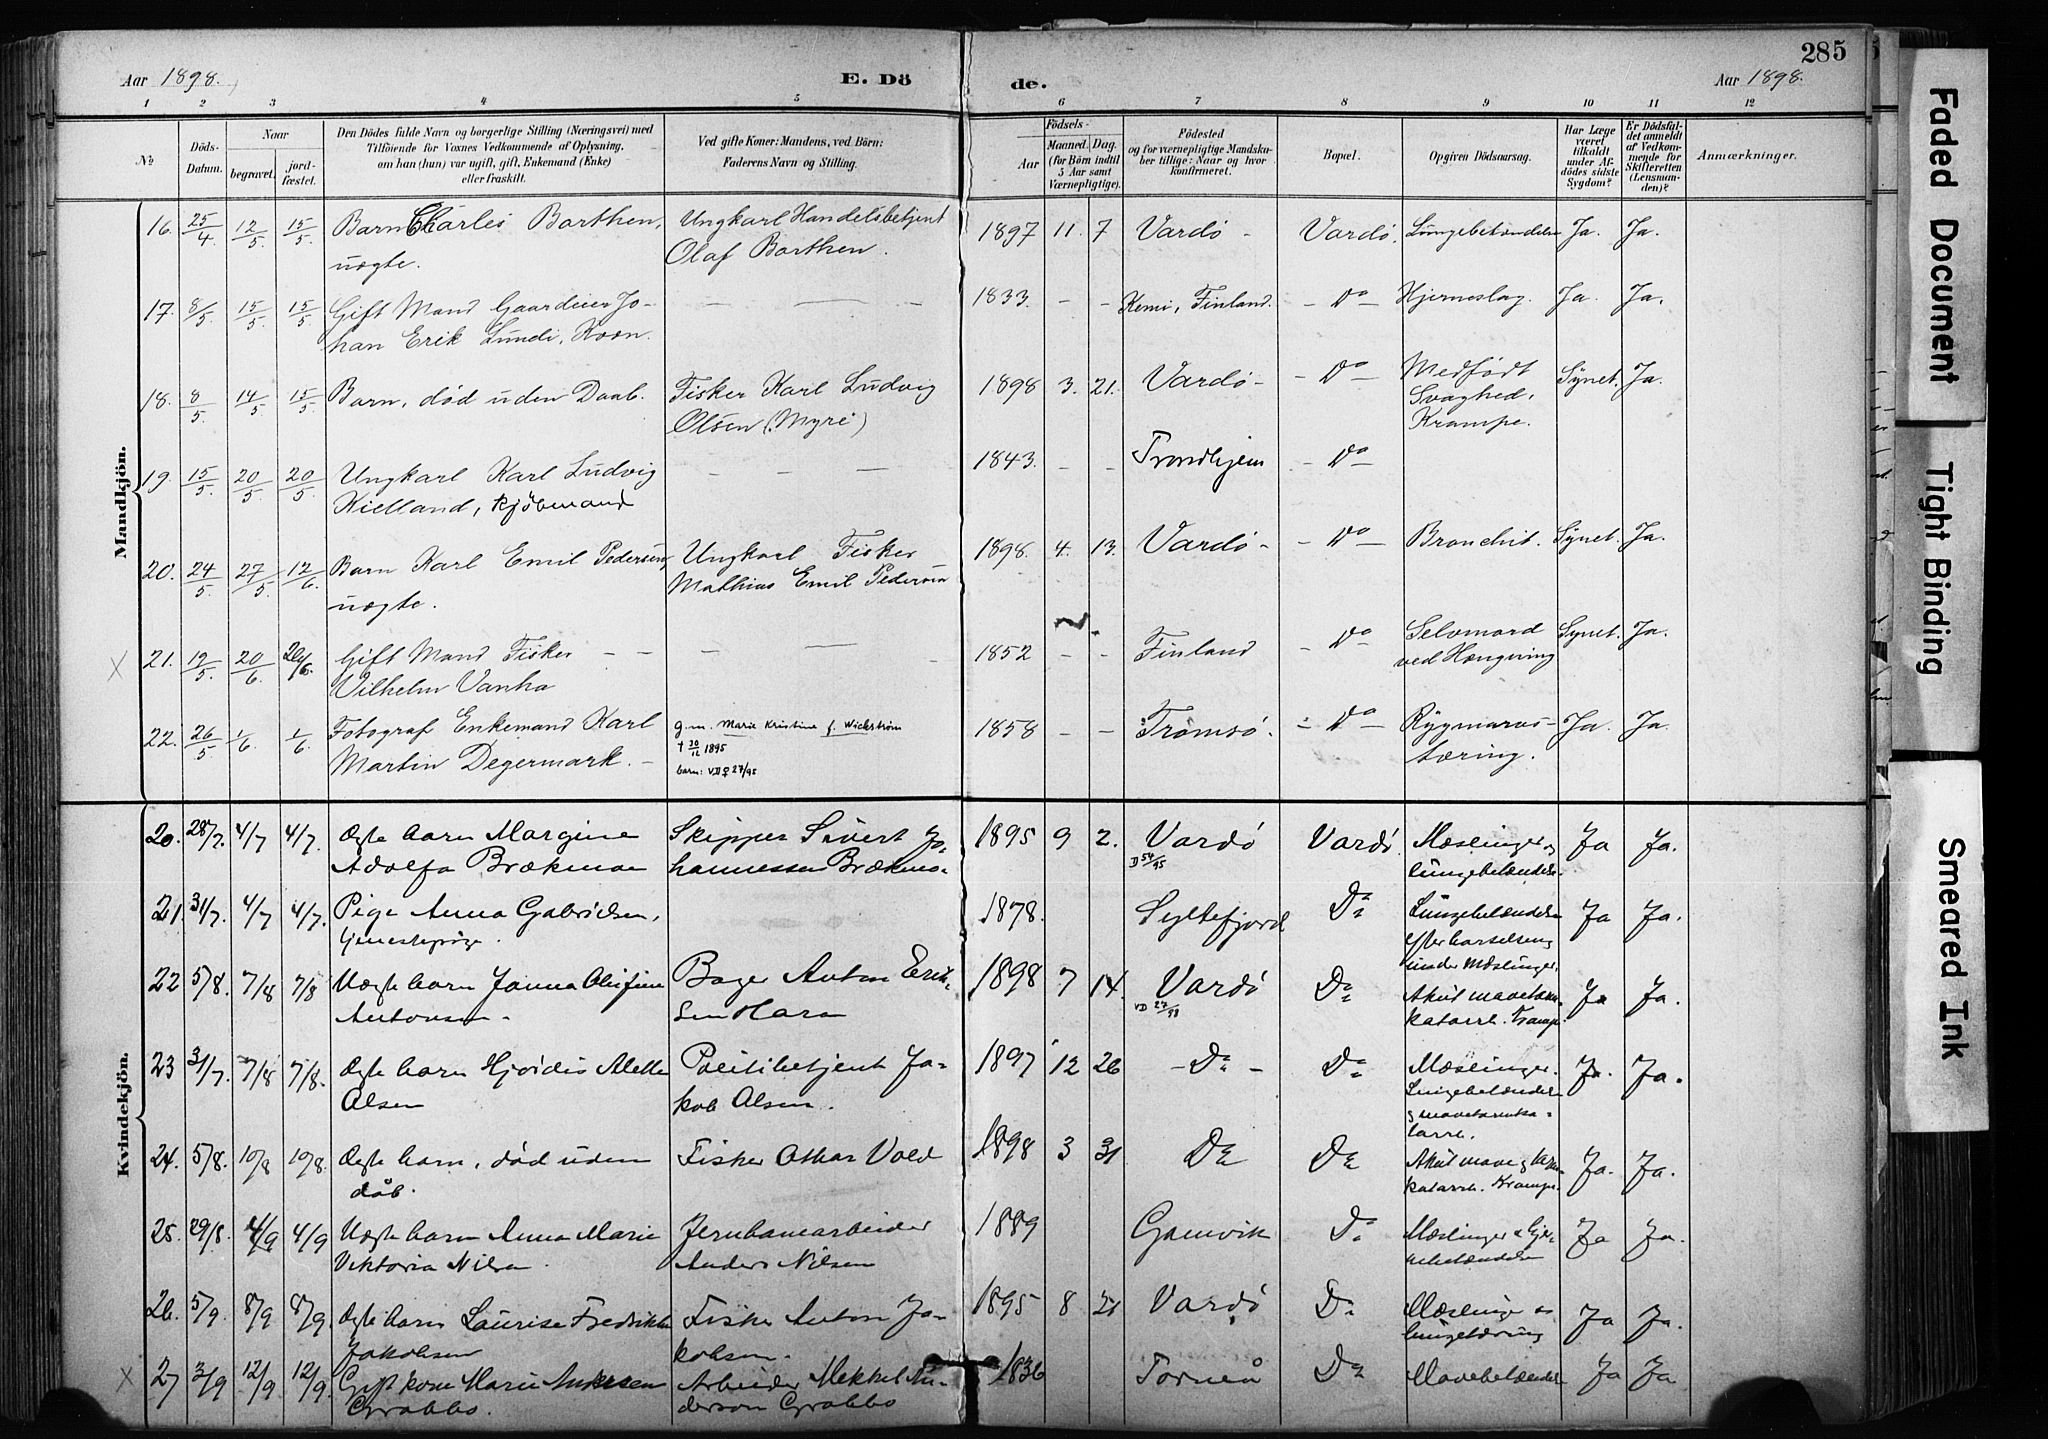 285
Aar 1898.
E. Dö de.
Aar 1898.
1 2 3 4 5 6 7 8 9 10 11 12
No
Döds-Datum.
Naar
begravet.
jordfæstet.
Den Dödes fulde Navn og borgerlige Stilling (Næringsvei) med
Tilföiende for Voxnes Vedkommende af Oplysning,
om han (hun) var ugift, gift, Enkemand (Enke)
eller fraskilt.
Ved gifte Koner: Mandens, ved Börn:
Faderens Navn og Stilling.
Födsels-
Aar
Maaned.
Dag.
(for Börn indtil
5 Aar samt
Værnepligtige).
Födested
og for værnepligtige Mandskaber tillige: Naar og hvor
konfirmeret.
Bopæl.
Opgiven Dödsaarsag.
Har Læge
været
tilkaldt
under Afdödes sidste
Sygdom?
Er Dödsfaldet anmeldt
af Vedkommende for
Skifteretten
(Lensmanden)?
Anmærkninger.
Mandkjön.
16. 25/4 12/5 15/5 Barn Charles Barthen, Ungkarl Handelsbetjent 1897 11. 7 Vardö - Vardö. Lungebetændelse Ja. Ja.
uægte. Olaf Barthen.
17. 8/5 15/5 15/5 Gift Mand Gaardeier Jo- — — — 1833. - - Kemi, Finland. - Do - Hjerneslag. Ja. Ja.
han Erik Lundi, Kvæn.
18. 8/5 14/5 15/5 Barn, död uden Daab. Fisker Karl Ludvig 1898 3. 21. Vardö - - Do - Medfödt Synet. Ja.
Olsen (Myre) Svaghed,
Krampe.
19. 15/5 20/5 20/5 Ungkarl Karl Ludvig — — — 1843. - - Trondhjem - Do -
Kielland, kjöbmand
20. 24/5 27/5 12/6 Barn Karl Emil Pedersen, Ungkarl Fisker 1898. 4. 13. Vardö - - Do - Bronchit. Synet. Ja.
uægte. Mathias Emil Pedersen
X 21. 19/5 20/6 Gift Mand Fisker - - — — 1852 - - Finland - Do - Selvmord Synet. Ja.
Vilhelm Vanha ved Hængning
22. 26/5 1/6 1/6 Fotograf Enkemand Karl g.m. Marie Kristine f. Wickström 1858 - - Tromsö. - Do - Rygmarvs- Ja. Ja.
Martin Degermark. - † 30/12 1895 tæring.
barn: VD ♀ 27/95
Kvindekjön.
20. 28/7. 4/7 4/7. Ægte barn Margine Skipper Sivert Jo- 1895 9 2. Vardö Vardö. Mæslinger og Ja Ja.
Adolfa Brækmoe hannessen Brækmo. D 54/95 Lungebetændelse
21. 31/7. 4/7 4/7. Pige Anna Gabrielsen, 1878. Syltefjord Do Lungebetændelse Ja Ja.
tjenestepige. efter barselseng
under Mæslinger.
22 5/8. 7/8 7/8 Uægte barn Janna Olufine Bager Anton Erik- 1898 7 14. Vardö Do Akut mavetarm- Ja Ja.
Antonsen - sen Hara VD 27/98 katarrh. Krampe.
23 31/7. 7/8 7/8. Ægte barn Hjördis Alette Politibetjent Ja- 1897 12 26 - Do - Do Mæslinger. Ja. Ja.
Olsen kob Olsen. Lungebetændelse
g mavetarmka-
tarrh.
24. 5/8. 10/8 10/8. Ægte barn, död uden Fisker Othar Vold 1898 3 31 Do Do Akut mave g tarm- Ja. Ja.
dåb. katarrh. Krampe.
25. 29/8. 4/9 4/9 Uægte barn Anna Marie Jernbanearbeider 1889 Gamvik Do Mæslinger Ja Ja.
Viktoria Nilsen. Anders Nilsen
26. 5/9. 8/9 8/9. Ægte barn Laurise Fredrikke Fisker Anton Ja- 1895 8 21 Vardö Do Mæslinger og Ja Ja.
Jakobsen kobsen. lungetæring
X 27 3/9 12/9 12/9. Gift kone Marie Andersen Arbeider Mikkel An- 1836 Torneå Do Mavebetændelse Ja Ja
Grabbo. derson Grabbo
Faded Document
Tight Binding
Smeared Ink